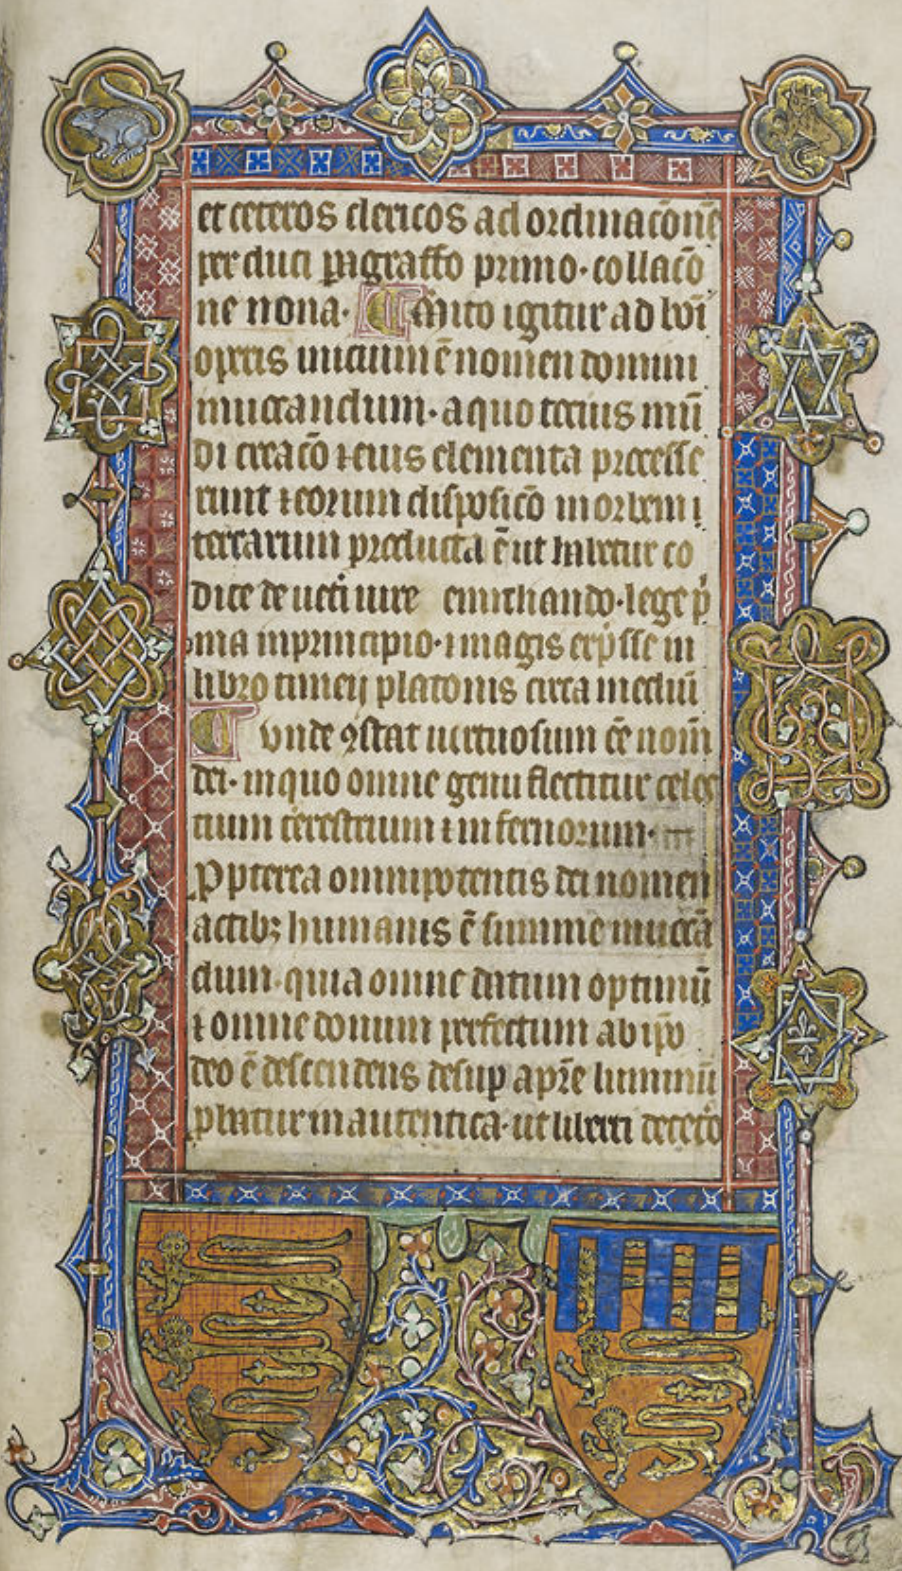 et ceteros clericos ad ordinacōnē
perduci pagraffo primo · collacō
ne nona · Inito igitur ad hui
operis inicium ē nomen domini
inuocandum · a quo tocius mū
di creacō ⁊ eius elementa processe
runt ⁊ eorum disposicō in orbem
terrarum producta ē ut habetur co
dice de ueti iure enucliando · lege p
ma in principio · in libro
libro timeij platonis circa mediū
vnde ꝯstat uirtuosum ēe nom̄
dei · in quo omne genu flectitur celes
tium terestrium ⁊ infernorum ·
Ppterea omnipotentis dei nomen
actibꝫ humanis ē summe inuocā
dum · quia omne datum optimū
⁊ omne donum perfectum ab ipo
deo ē descendens desup a pr̄e luminū
phatur in autentica · ut liberi decetō